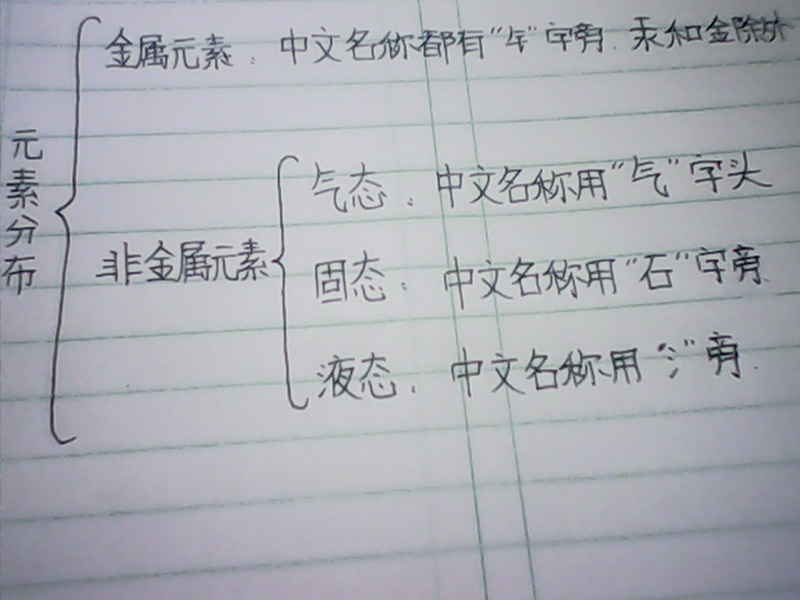 元素分布
金属元素：中文名称都有"钅"字旁.汞和金除外
非金属元素
气态：中文名称用"气"字头
固态：中文名称用"石"字旁.
液态：中文名称用"氵"旁.